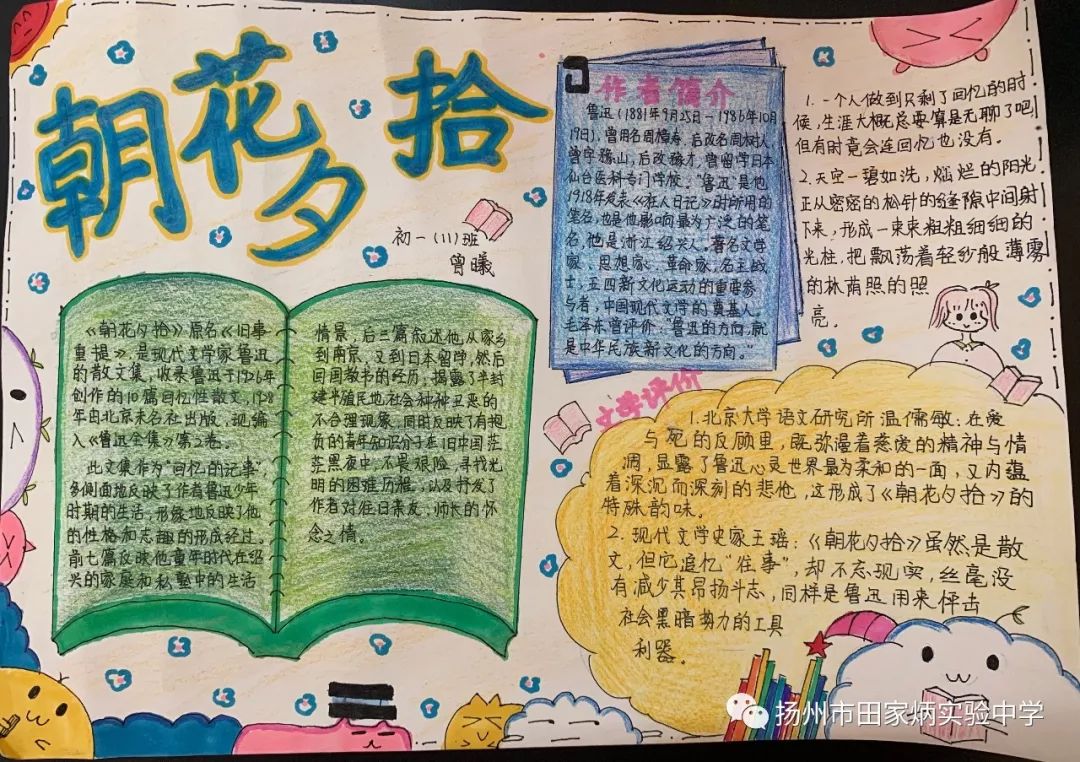 朝花夕拾
初一(11)班
曾曦
《朝花夕拾》原名《旧事
重提》，是现代文学家鲁迅
的散文集，收录鲁迅于1926年
创作的10篇回忆性散文，1928
年由北京未名社出版，现编
入《鲁迅全集》第2卷。
此文集作为“回忆的记事”
多侧面地反映了作者鲁迅少年
时期的生活，形像地反映了他
的性格和志趣的形成经过。
前七篇反映他童年时代在绍
兴的家庭和私塾中的生活
情景，后三篇叙述他从家乡
到南京，又到日本留学，然后
回国教书的经历，揭露了半封
建半殖民地社会种种丑恶的
不合理现象，同时反映了有抱
负的青年知识分子在旧中国茫
茫黑夜中，不畏艰险，寻找光
明的困难历程，以及抒发了
作者对往日亲友，师长的怀
念之情。
作者简介
鲁迅(1881年9月25日－1986年10月
19日)，曾用名周樟寿，后改名周树人，
曾字豫山，后改豫才，曾留学日本
仙台医科专门学校。“鲁迅”是他
1918年发表《狂人日记》时所用的
笔名，也是他影响最为广泛的笔
名，他是浙江绍兴人。著名文学
家、思想家、革命家，名主战
士，五四新文化运动的重要参
与者，中国现代文学的奠基人。
毛泽东曾评价：“鲁迅的方向，就
是中华民族新文化的方向。”
1.一个人做到只剩了回忆的时
候，生涯大概总要算是无聊了吧，
但有时竟会连回忆也没有。
2.天空一碧如洗，灿烂的阳光
正从密密的松针的缝隙中间射
下来，形成一束束粗粗细细的
光柱，把飘荡着轻纱般薄雾
的林荫照的照
亮。
文学评价
1.北京大学语文研究所温儒敏：在爱
与死的反顾里，既弥漫着慈爱的精神与情
调，显露了鲁迅心灵世界最为柔和的一面，又内蕴
着深沉而深刻的悲怆，这形成了《朝花夕拾》的
特殊韵味。
2.现代文学史家王瑶：《朝花夕拾》虽然是散
文，但它追忆“往事”，却不忘现实，丝毫没
有减少其昂扬斗志，同样是鲁迅用来抨击
社会黑暗势力的工具
利器。
扬州市田家炳实验中学